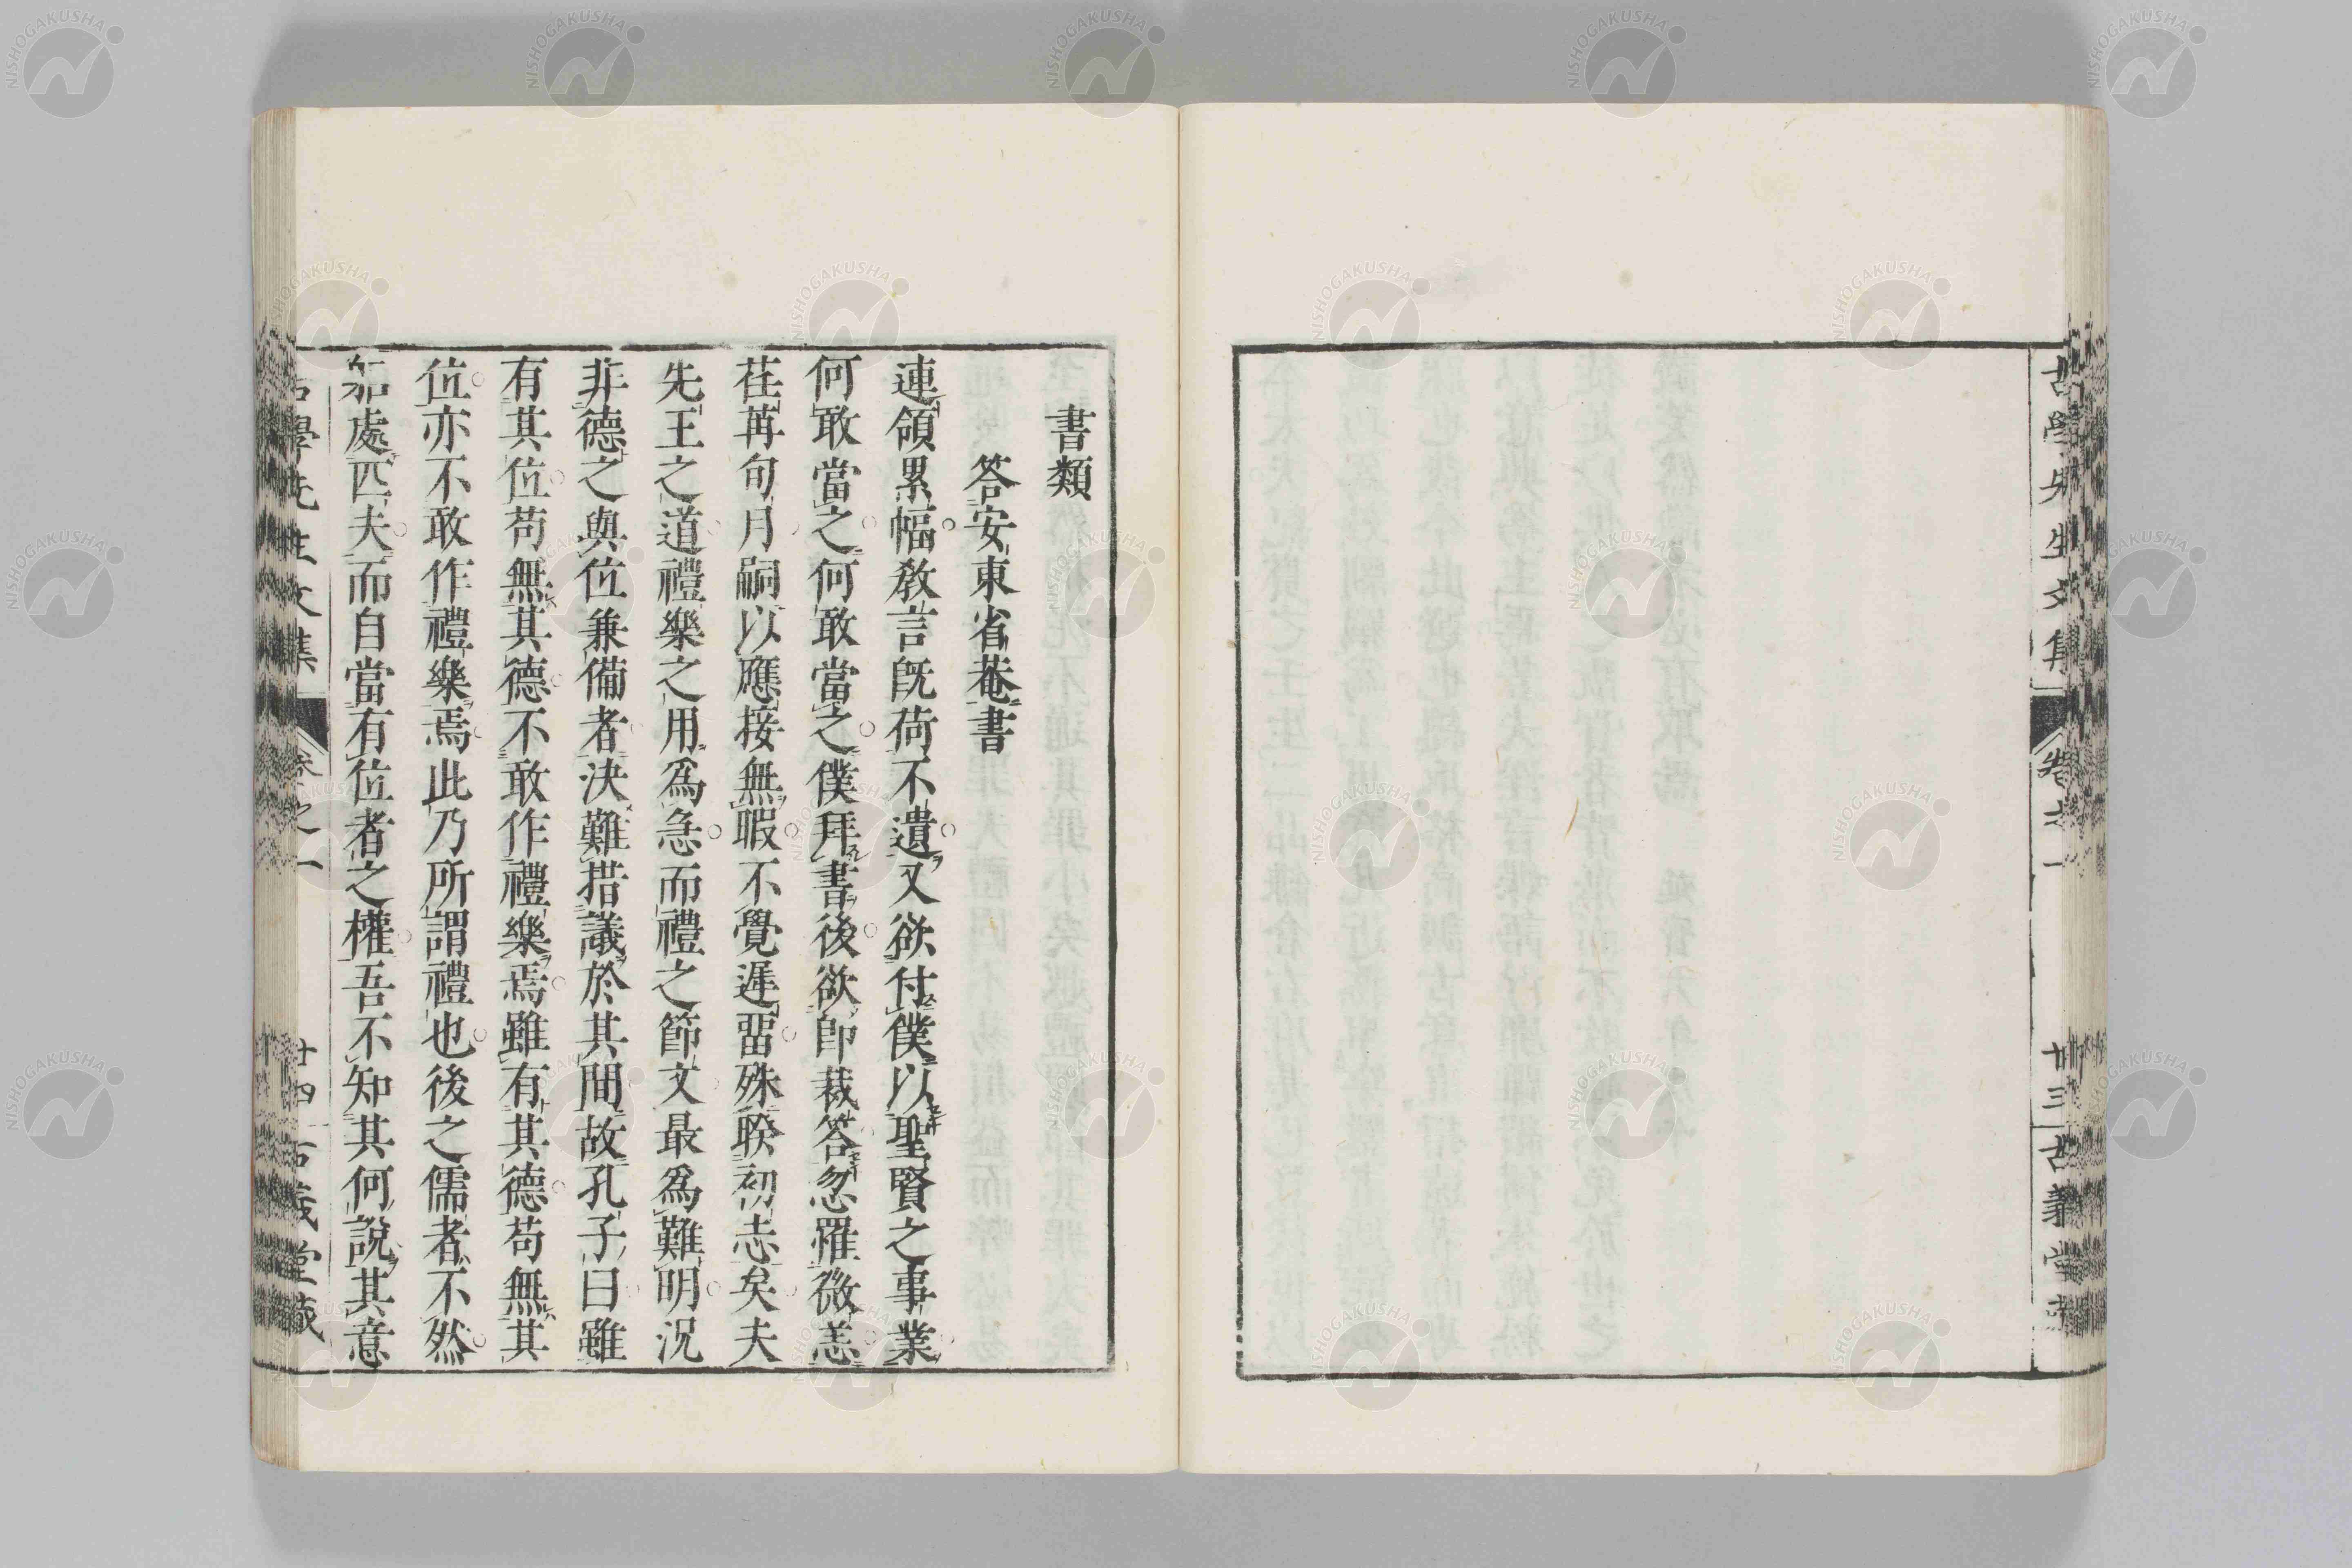 古學先生文集
卷之一
廿三
古義堂藏
書類
答安東省菴書
連領累幅教言既荷不遺又欲付僕以聖賢之事業
何敢當之何敢當之僕拜書後欲卽裁答忽罹微恙
荏苒旬月嗣以應接無暇不覺遲畱殊睽初志矣夫
先王之道禮樂之用爲急而禮之節文最爲難明況
非德之與位兼備者決難措議於其間故孔子曰雖
有其位苟無其德不敢作禮樂焉雖有其德苟無其
位亦不敢作禮樂焉此乃所謂禮也後之儒者不然
如處匹夫而自當有位者之權吾不知其何說其意
古學先生文集
卷之一
廿四
古義堂藏
NISHOGAKUSHA